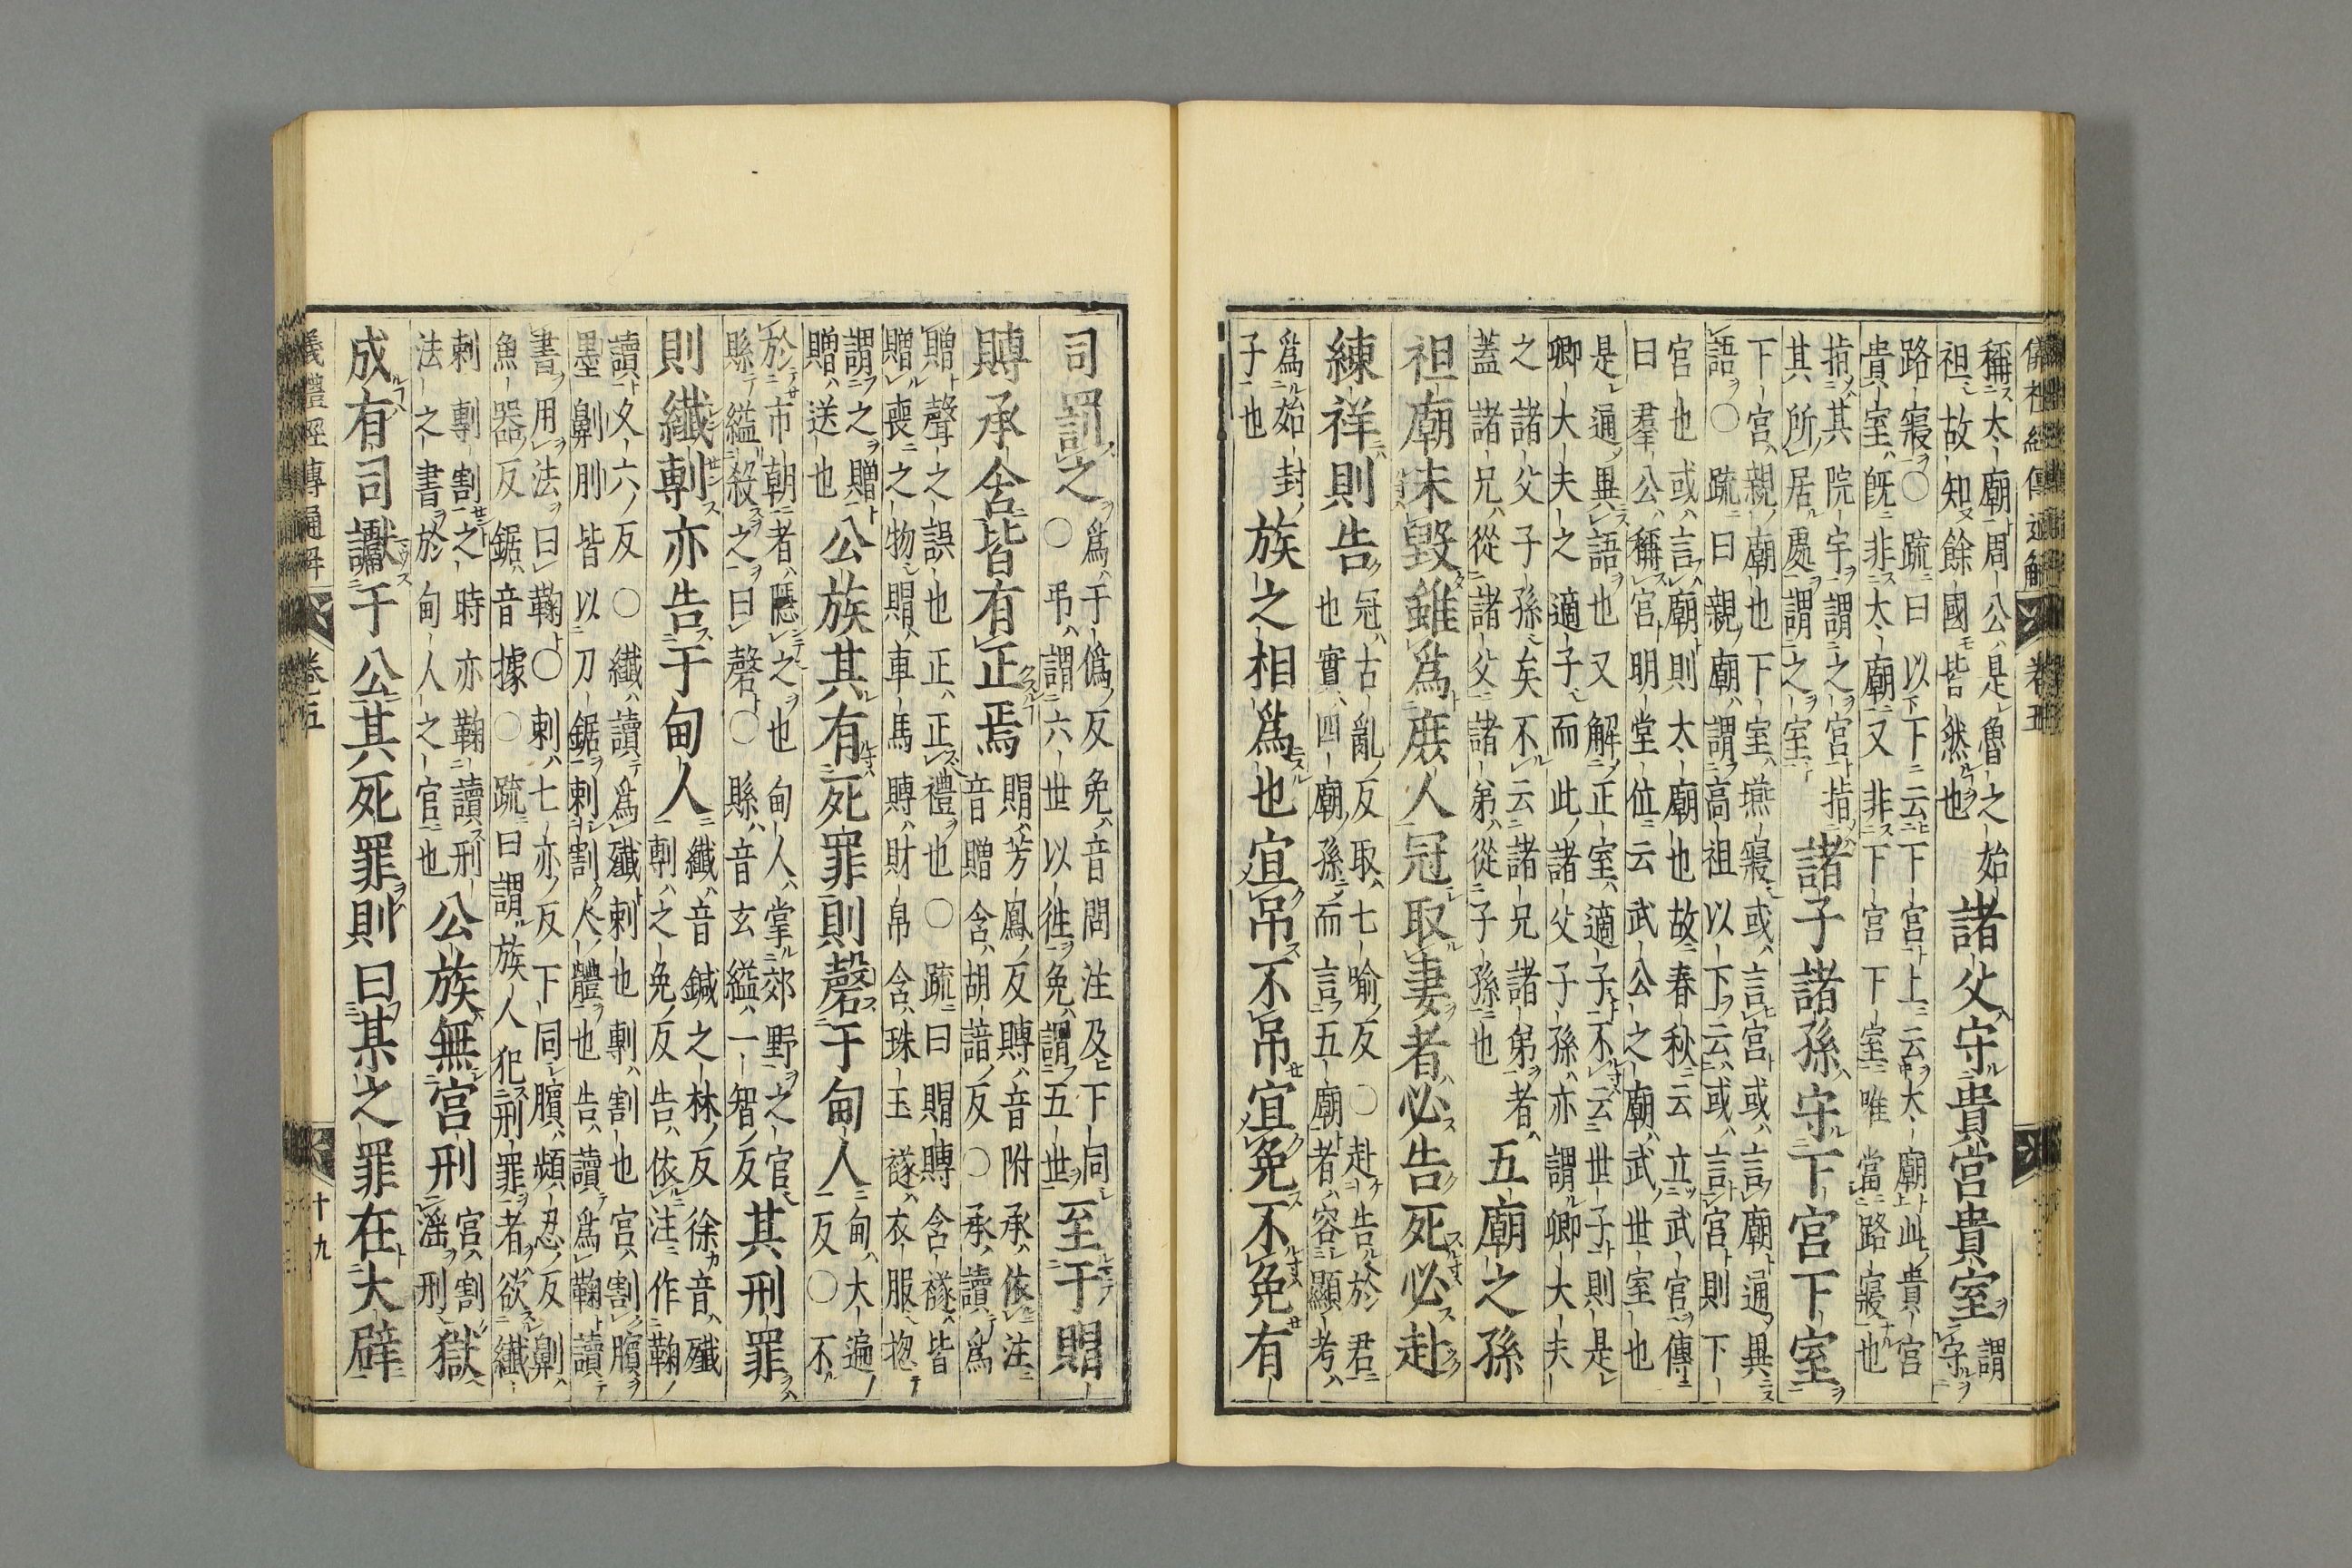 儀礼經傳通解 卷五
稱太廟周公是魯之始
祖故知餘國皆然也
諸父守貴宮貴室
謂
守
路寢○疏曰以下云下宮上云大廟此貴宮
貴室既非太廟又非下宮下室唯當路寢也
指其院宇謂之宮指
其所居處謂之室
諸子諸孫守下宮下室
下宮親廟也下室燕寢或言宮或言廟通異
語○疏曰親廟謂高祖以下云或言宮則下
宮也或言廟則太廟也故春秋云立武宮傳
曰羣公稱宮明堂位云武公之廟武世室也
是通異語也又解正室適子不云世子則是
卿大夫之適子而此諸父子孫亦謂卿大夫
之諸父子孫矣不云諸兄諸弟者
蓋諸兄從諸父諸弟從子孫也
五廟之孫
祖廟未毀雖為庶人冠取妻者必告死必赴
練祥則告
冠古亂反取七喻反○赴告於君
也實四廟孫而言五廟者容顯考
為始封
子也
族之相為也宜弔不弔宜免不免有
司罰之
為于偽反免音問注及下同
○弔謂六世以往免謂五世
至于賵
賻承含皆有正焉
賵芳鳳反賻音附承依注
音贈含胡諳反○承讀為
贈聲之誤也正正禮也○疏曰賵賻含襚皆
贈喪之物賵車馬賻財帛含珠玉襚衣服揔
謂之贈
贈送也
公族其有死罪則磬于甸人
甸大遍
反○不
於市朝者隱之也甸人掌郊野之官
縣縊殺之曰磬○縣音玄縊一智反
其刑罪
則纖剸亦告于甸人
纖音鍼之林反徐音殲
剸之免反告依注作鞠
讀攵六反○纖讀為殲刺也剸割也宮割臏
墨劓刖皆以刀鋸刺割人體也告讀為鞠讀
書用法曰鞠○刺七亦反下同臏頻忍反劓
魚器反鋸音據○疏曰謂族人犯刑罪者欲纖
刺剸割之時亦鞠讀刑
法之書於甸人之官也
公族無宮刑
宮割
淫刑
獄
成有司讞于公其死罪則曰某之罪在大辟
儀禮經傳通解 卷五 十九